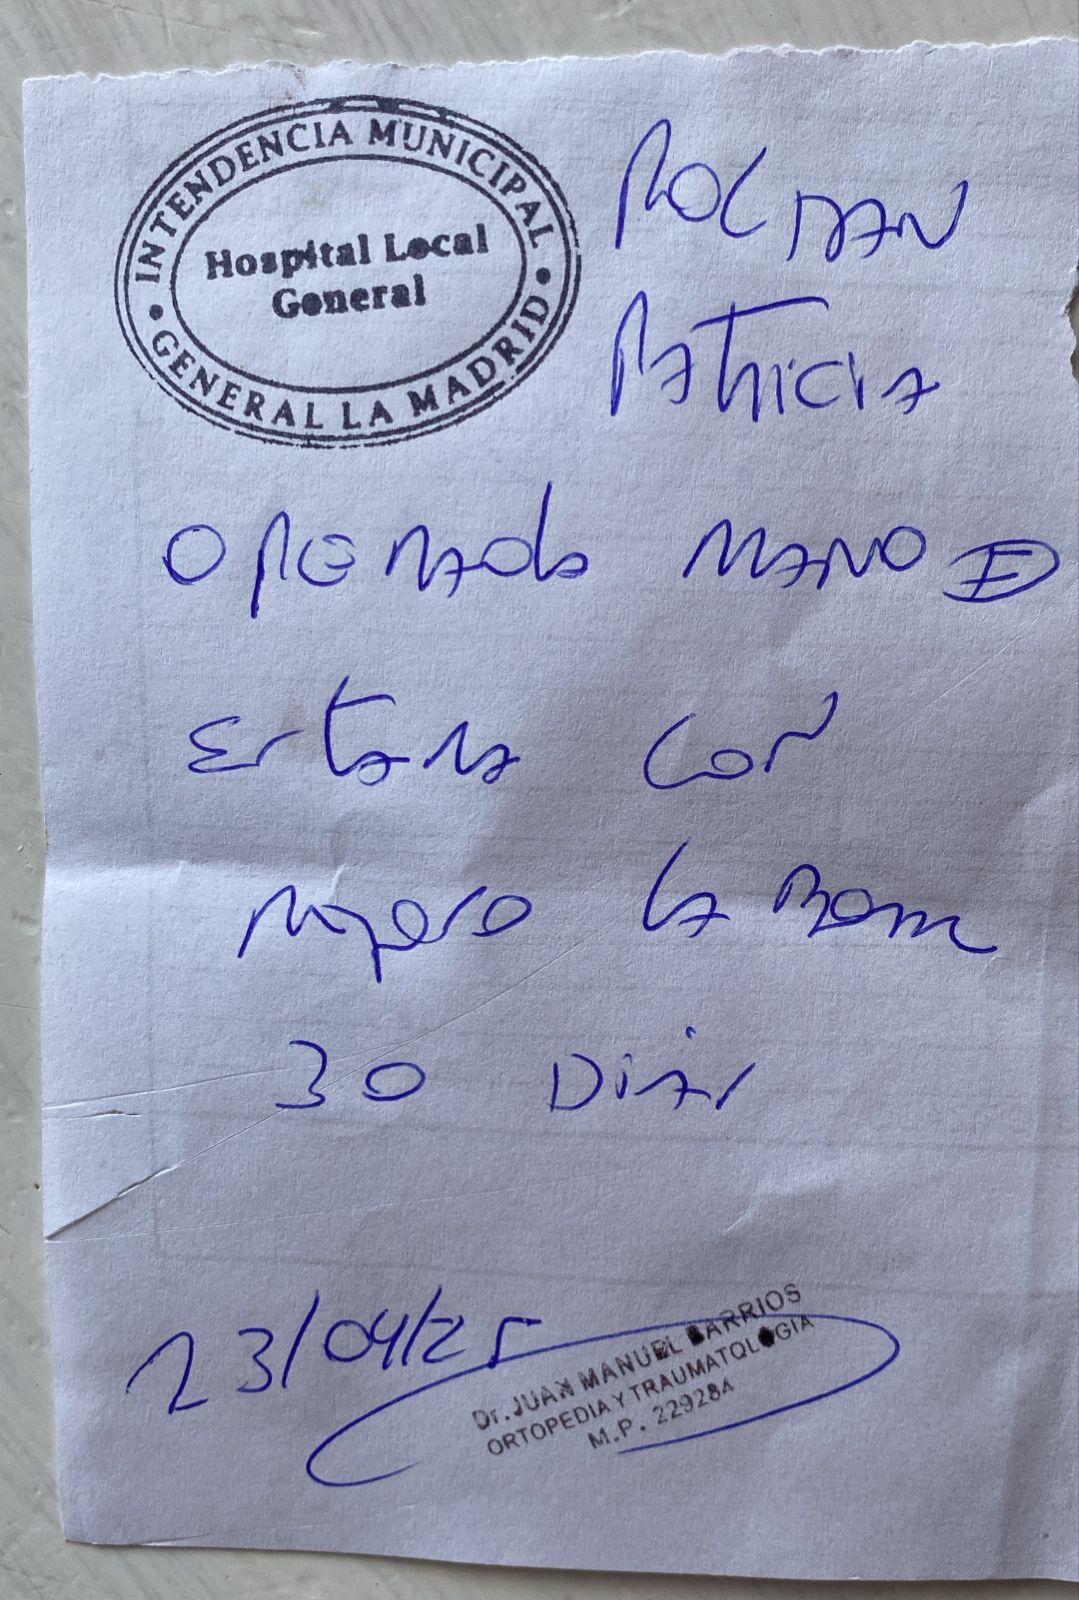 INTENDENCIA MUNICIPAL
Hospital Local
General
GENERAL LA MADRID
ROLDAN
PATRICIA
OPERADA MANO D
ESTARA CON
REPOSO LABORAL
30 DIAS
23/04/25
Dr. JUAN MANUEL BARRIOS
ORTOPEDIA Y TRAUMATOLOGIA
M.P. 229284